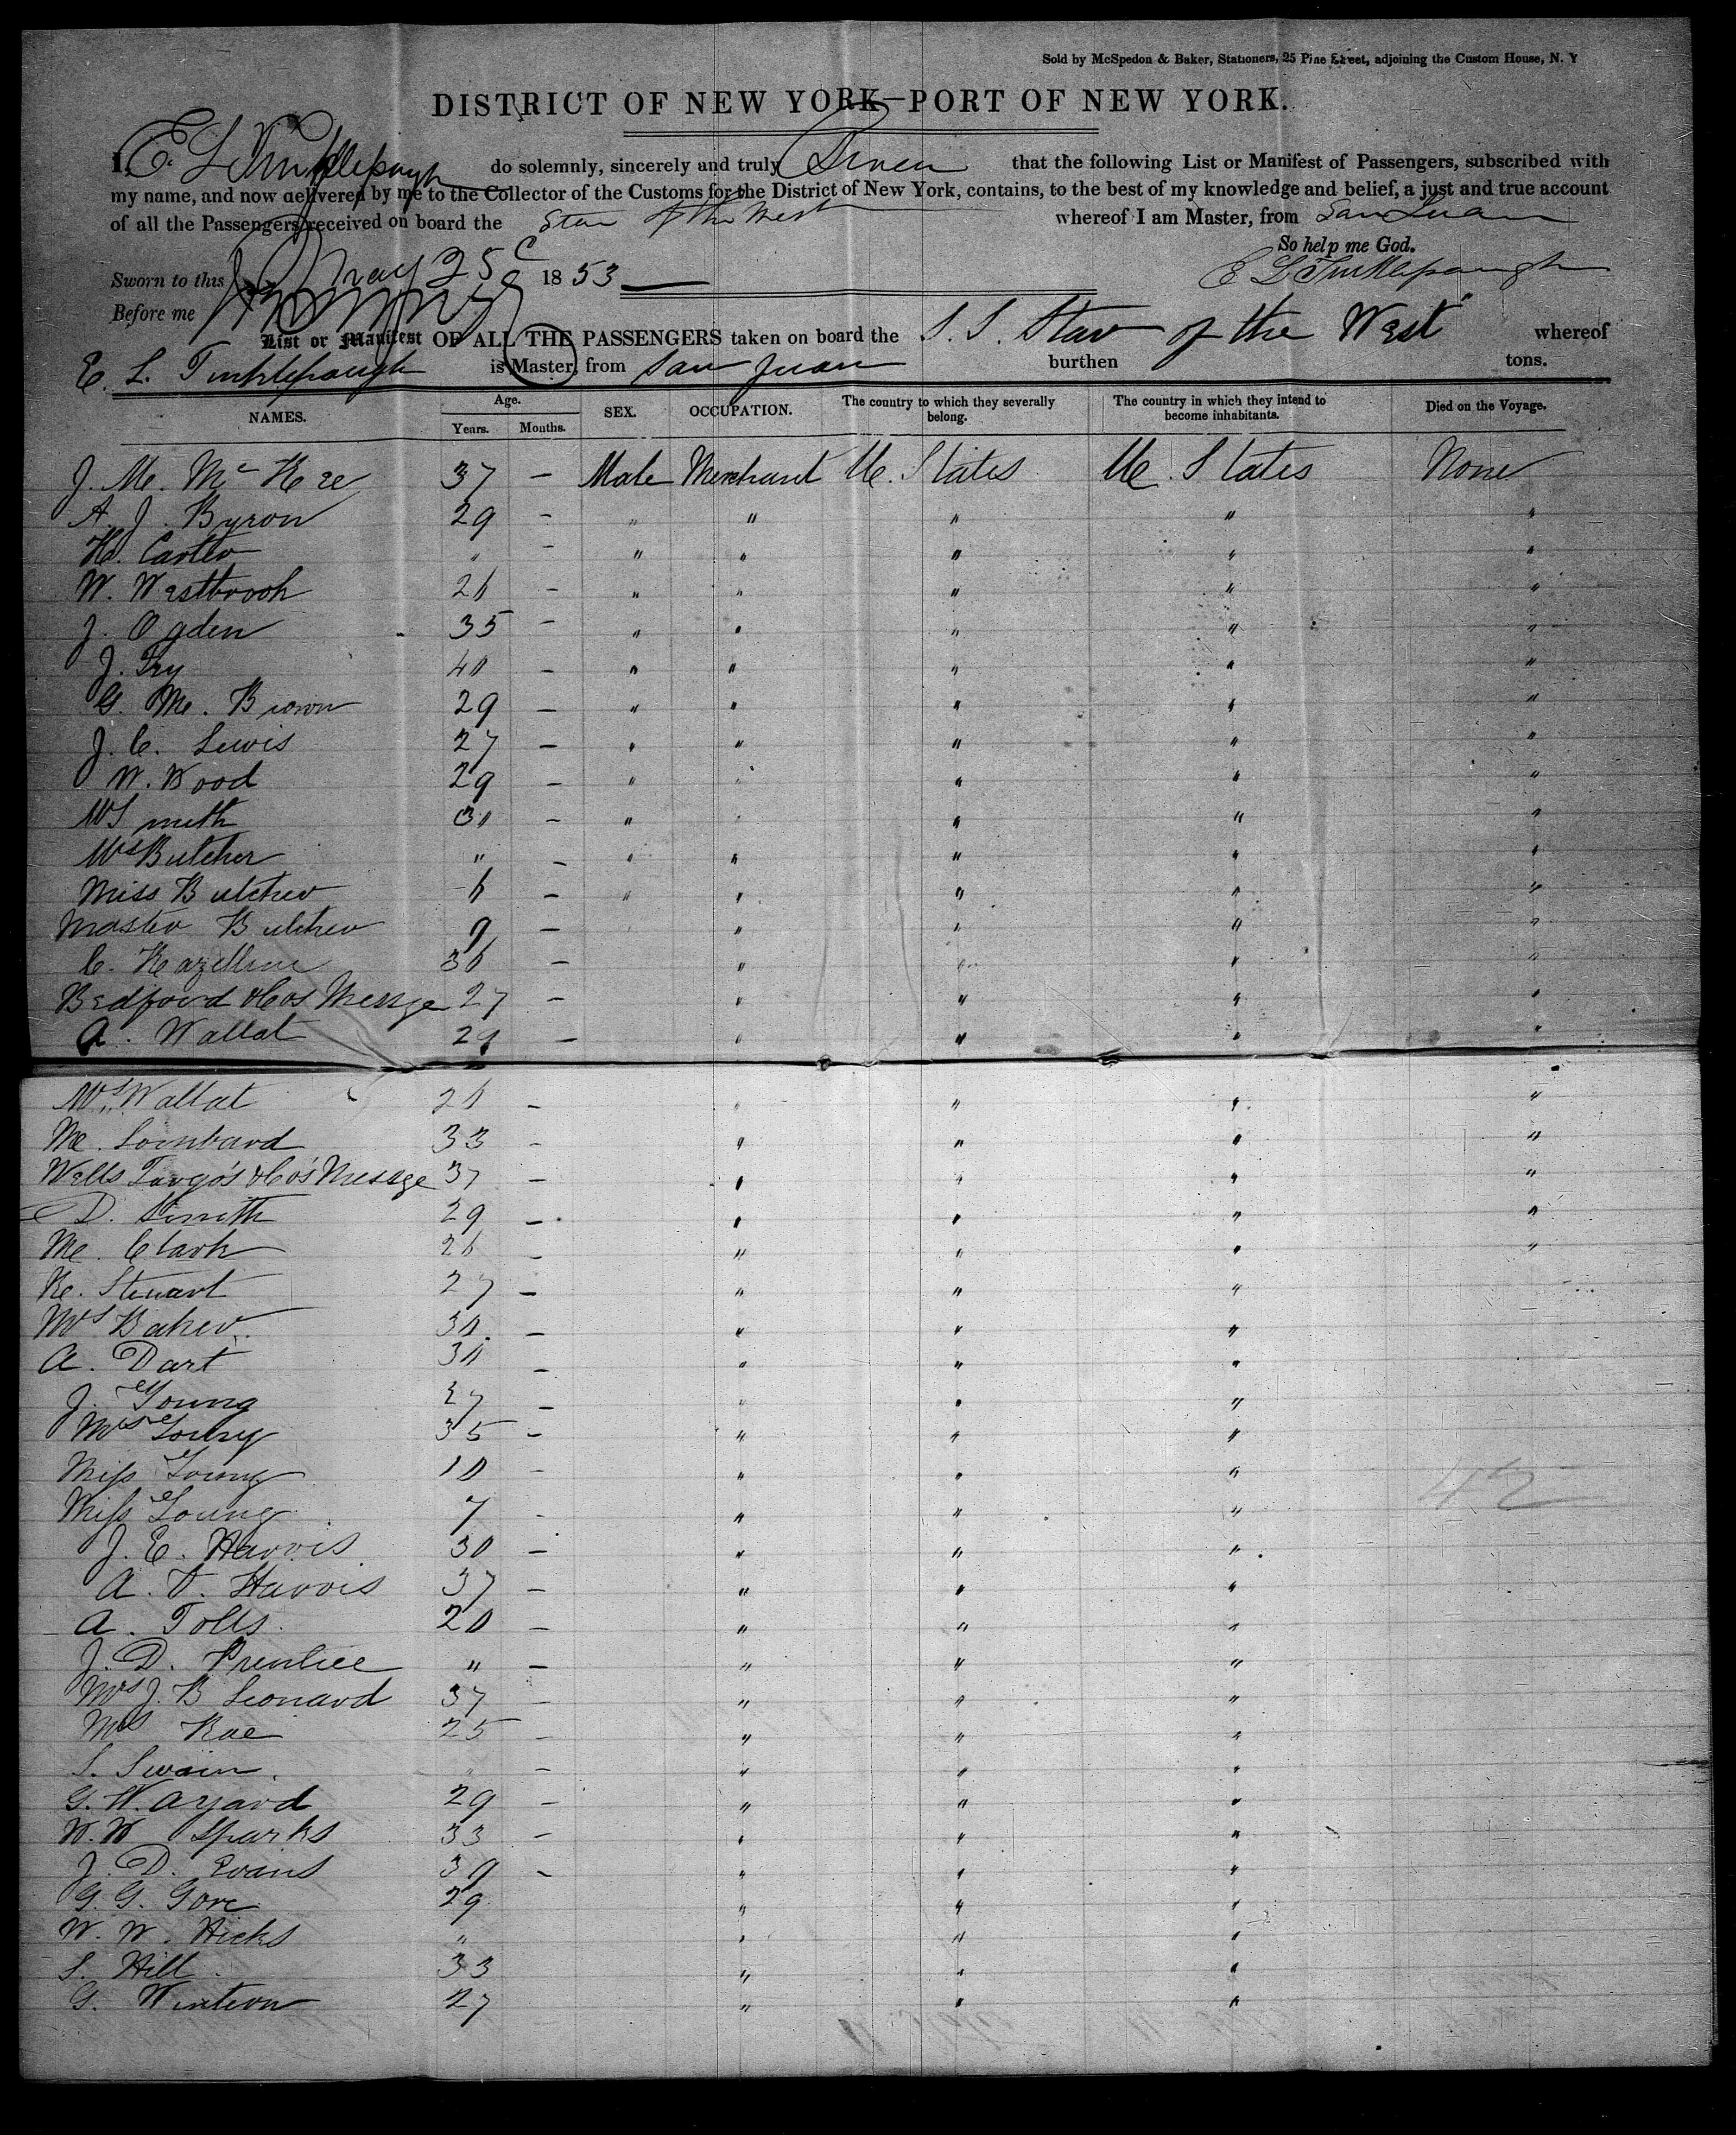 Sold by McSpedon & Baker, Stationers, 25 Pine Street, adjoining the Custom House, N. Y
DISTRICT OF NEW YORK—PORT OF NEW YORK.
I, E. L. Tinklepaugh do solemnly, sincerely and truly Swear that the following List or Manifest of Passengers, subscribed with
my name, and now delivered by me to the Collector of the Customs for the District of New York, contains, to the best of my knowledge and belief, a just and true account
of all the Passengers received on board the Star of the West whereof I am Master, from San Juan
So help me God.
Sworn to this May 25 1853 E L Tinklepaugh
Before me
List or Manifest OF ALL THE PASSENGERS taken on board the S. S. Star of the West" whereof
E. L. Tinklepaugh is Master, from San Juan burthen tons.
NAMES. Age. Years. Months. SEX. OCCUPATION. The country to which they severally belong. The country in which they intend to become inhabitants. Died on the Voyage.
J. M. Mc Kee 37 – Male Merchant U. States U. States None
A. J. Byron 29 – " " " " "
H. Carter " – " " " " "
W. Westbrook 26 – " " " " "
J. Ogden 35 – " " " " "
J. Fry 40 – " " " " "
G. M. Brown 29 – " " " " "
J. C. Lewis 27 – " " " " "
W. Wood 29 – " " " " "
Mrs Smith 30 – " " " " "
Mrs Butcher " – " " " " "
Miss Butcher 6 – " " " " "
Master Butcher 9 – " " " "
C. Hazeltine 36 – " " " "
Bedford & Cos Messge 27 – " " " "
A. Wallat 29 – " " " "
Mrs Wallat 20 – " " " "
M. Lombard 33 – " " " "
Wells Fargo's & Co's Messge 37 – " " " "
D. Smith 29 – " " " "
M. Clark 26 – " " " "
R. Stewart 27 – " " "
Mrs Baker 30 – " " "
A. Dart 30 – " " "
J. Young 37 – " " "
Mrs Young 35 – " " "
Miss Young 10 – " " "
Miss Young 7 – " " "
J. E. Harris 30 – " " "
A. V. Harris 37 – " " "
A. Tolls 20 – " " "
J. D. Prentice " – " " "
Mrs J. B Leonard 37 – " " "
Mrs Rae 25 – " " "
S. Swain " – " " "
G. W. Ayard 29 – " " "
W. W Sparks 33 – " " "
J. D. Evans 39 – " " "
G. G. Gore 29 " " "
W. W. Hicks " " " "
S. Hill 33 " " "
G. Wintern 27 " " "